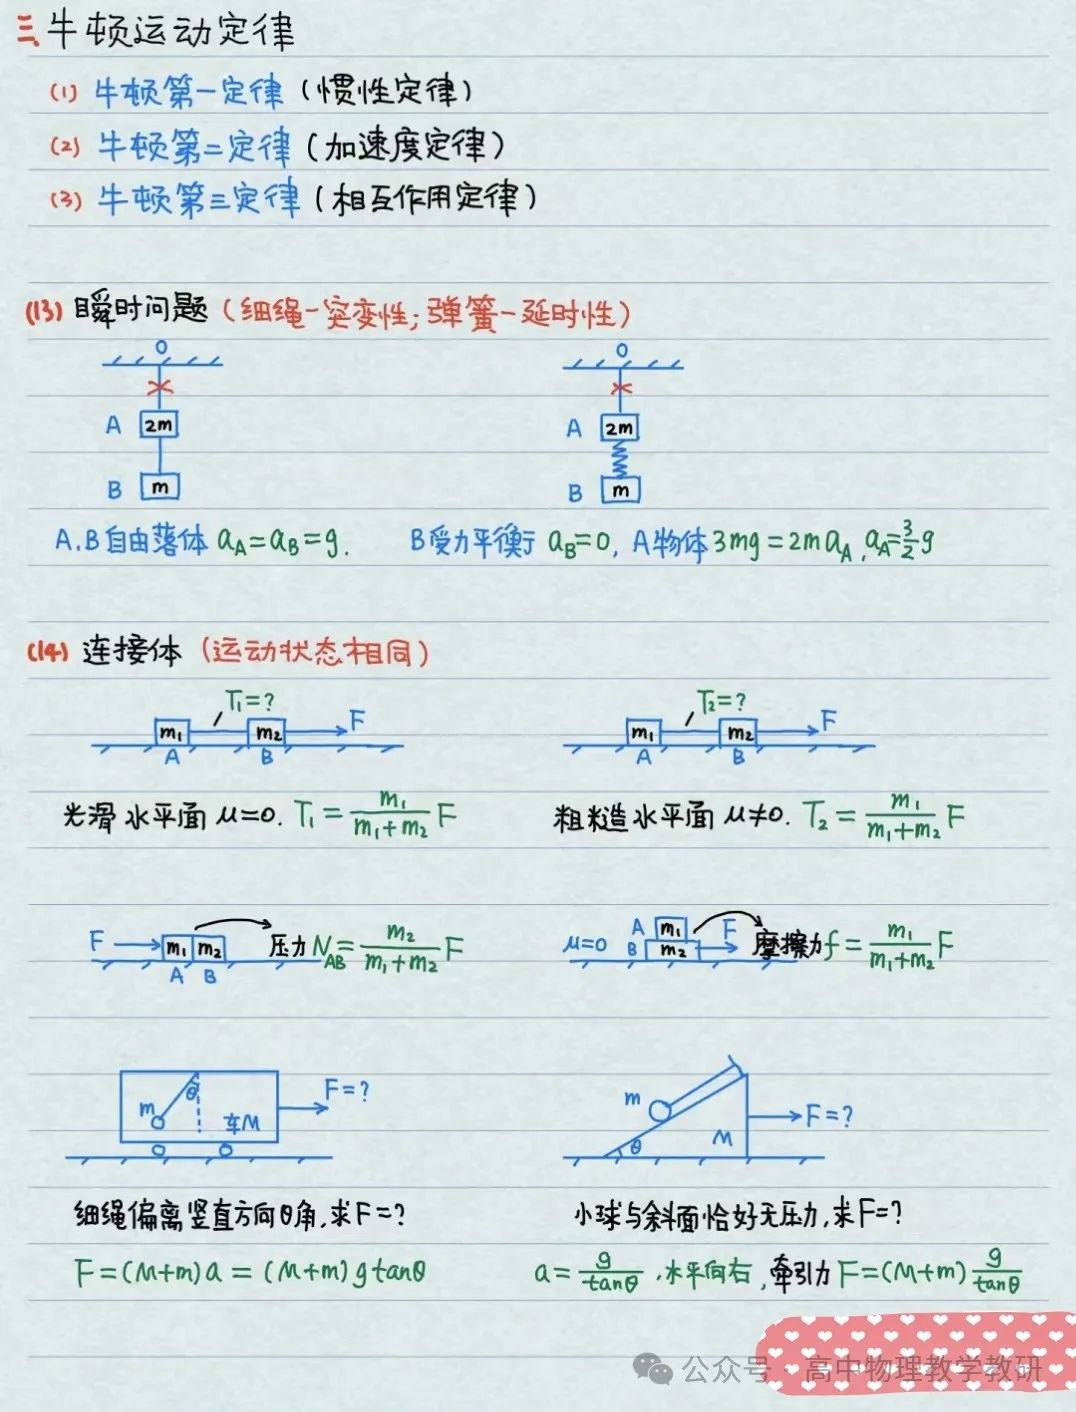 三、牛顿运动定律
(1) 牛顿第一定律(惯性定律)
(2) 牛顿第二定律(加速度定律)
(3) 牛顿第三定律(相互作用定律)
(13) 瞬时问题(细绳-突变性;弹簧-延时性)
O O
A 2m A 2m
B m B m
A.B自由落体 a_A=a_B=g. B受力平衡 a_B=0, A物体3mg=2ma_A, a_A=3/2 g
(14) 连接体(运动状态相同)
T₁=? T₂=?
m₁ m₂ F m₁ m₂ F
A B A B
光滑水平面 μ=0. T₁=m₁/(m₁+m₂) F 粗糙水平面 μ≠0. T₂=m₁/(m₁+m₂) F
F m₁ m₂ 压力 N_AB=m₂/(m₁+m₂) F μ=0 A m₁ B m₂ F 摩擦力 f=m₁/(m₁+m₂) F
A B
m θ 车M F=? m θ M F=?
细绳偏离竖直方向θ角,求F=? 小球与斜面恰好无压力,求F=?
F=(M+m)a=(M+m)gtanθ a=g/tanθ.水平向右,牵引力 F=(M+m) g/tanθ
公众号·高中物理教学教研